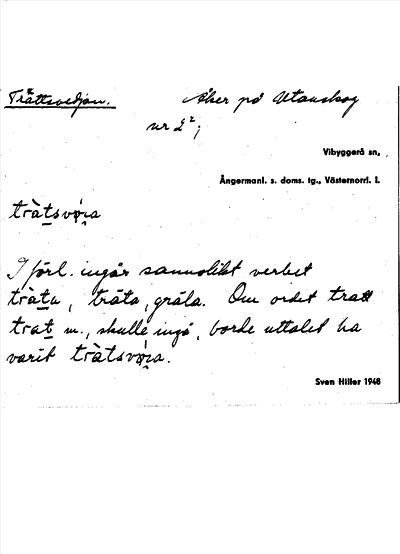 Trättsvedjan.
Åker på Utanskog
nr 2²;
Vibyggerå sn,
Ångermanl. s. doms. tg., Västernorrl. l.
trätsvø̜i̯a
I förl. ingår sannolikt verbet
träta, träta, gräla. Om ordet tratt
trat m., skulle ingå, borde uttalet ha
varit trätsvø̜i̯a.
Sven Hiller 1948